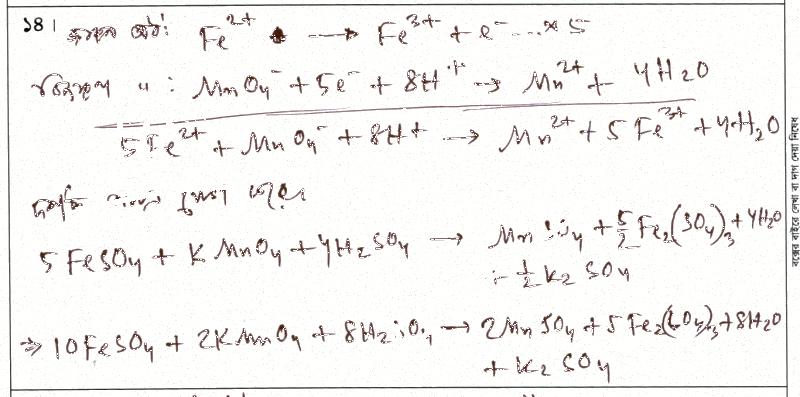 ১৪। জারণ অর্ধ: Fe²⁺ ⟶ Fe³⁺ + e⁻ ... × 5
বিজারণ " : MnO₄⁻ + 5e⁻ + 8H⁺ → Mn²⁺ + 4H₂O
5Fe²⁺ + MnO₄⁻ + 8H⁺ ⟶ Mn²⁺ + 5Fe³⁺ + 4H₂O
5FeSO₄ + KMnO₄ + 4H₂SO₄ ⟶ MnSO₄ + 5/2 Fe₂(SO₄)₃ + 4H₂O
+ 1/2 K₂SO₄
⇒ 10FeSO₄ + 2KMnO₄ + 8H₂SO₄ → 2MnSO₄ + 5Fe₂(SO₄)₃ + 8H₂O
+ K₂SO₄
বক্সের বাইরে লেখা বা দাগ দেয়া নিষেধ